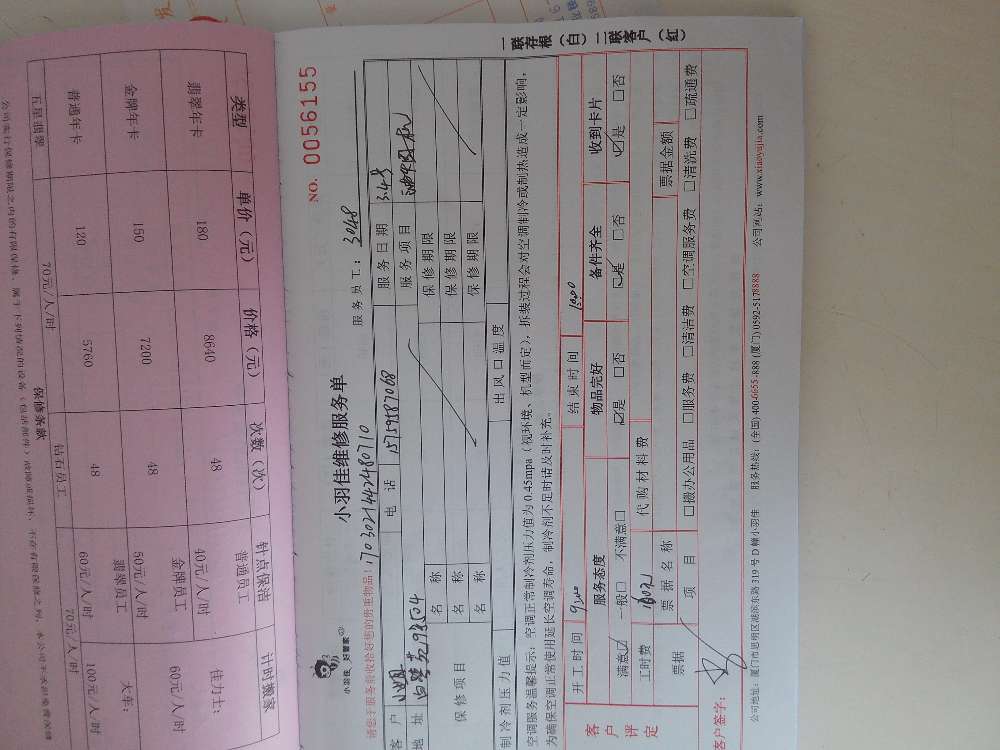 一联存根（白）二联客户（红）
NO. 0056155
小羽佳 好管家
小羽佳维修服务单
服务员工：3048
请您于服务前收拾好您的贵重物品！17030214424480710
客户 电话 15159587068 服务日期 3.4号
地址 服务项目
保修项目 名称 保修期限
名称 保修期限
名称 保修期限
制冷剂压力值 出风口温度
空调服务温馨提示：空调正常制冷剂压力值为 0.45mpa（视环境、机型而定），拆装过程会对空调制冷或制热造成一定影响，
为确保空调正常使用延长空调寿命，制冷剂不足时请及时补充。
客户评定 开工时间 结束时间
服务态度 物品完好 备件齐全 收到卡片
满意☑ 一般□ 不满意□ ☑是 □否 ☑是 □否 ☑是 □否
工时费 代购材料费
票据 票据名称 票据金额
项目 □缴办公用品 □服务费 □清洁费 □空调服务费 □清洗费 □疏通费
客户签字：
公司地址：厦门市思明区湖滨东路 319 号 D 幢小羽佳 服务热线：(全国) 400-6655-888 (厦门) 0592-5178888 公司网站：www.xiaoyujia.com
类型 单价（元） 价格（元） 次数（次） 钟点保洁 计时搬家
翡翠年卡 180 8640 48 普通员工 40元/人/时 佳力士： 60元/人/时
金牌年卡 150 7200 48 金牌员工 50元/人/时 火车：
普通年卡 120 5760 48 翡翠员工 60元/人/时 100元/人/时
70元/人/时 钻石员工 70元/人/时
保修条款